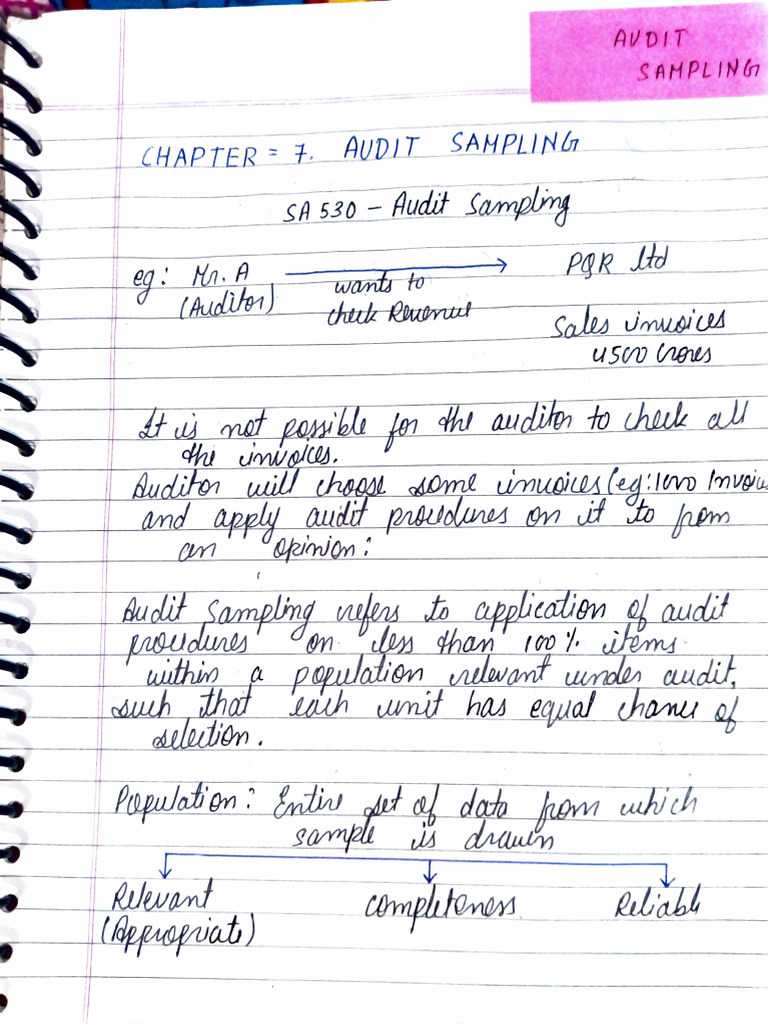 AUDIT
SAMPLING
CHAPTER = 7. AUDIT SAMPLING
SA 530 - Audit Sampling
eg: Mr. A → PQR ltd
(Auditor) wants to
check Revenue
Sales invoices
4500 Crores
It is not possible for the auditor to check all
the invoices.
Auditor will choose some invoices (eg: 1000 Invoic
and apply audit procedures on it to from
an opinion:
Audit Sampling refers to application of audit
procedures on less than 100% items
within a population relevant under audit,
such that each unit has equal chance of
selection.
Population: Entire set of data from which
sample is drawn
Relevant completeness Reliable
(Appropriate)